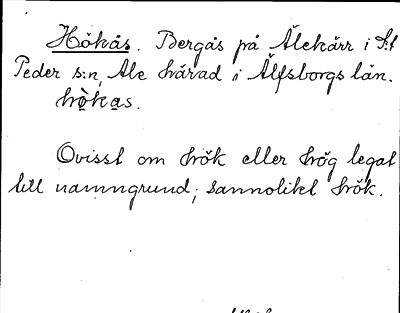 Hökås. Bergås på Älekärr i S:t
Peder s:n, Ale härad i Älfsborgs län.
hö̀kas.
Ovisst om hök eller hög legat
till namngrund; sannolikt hök.